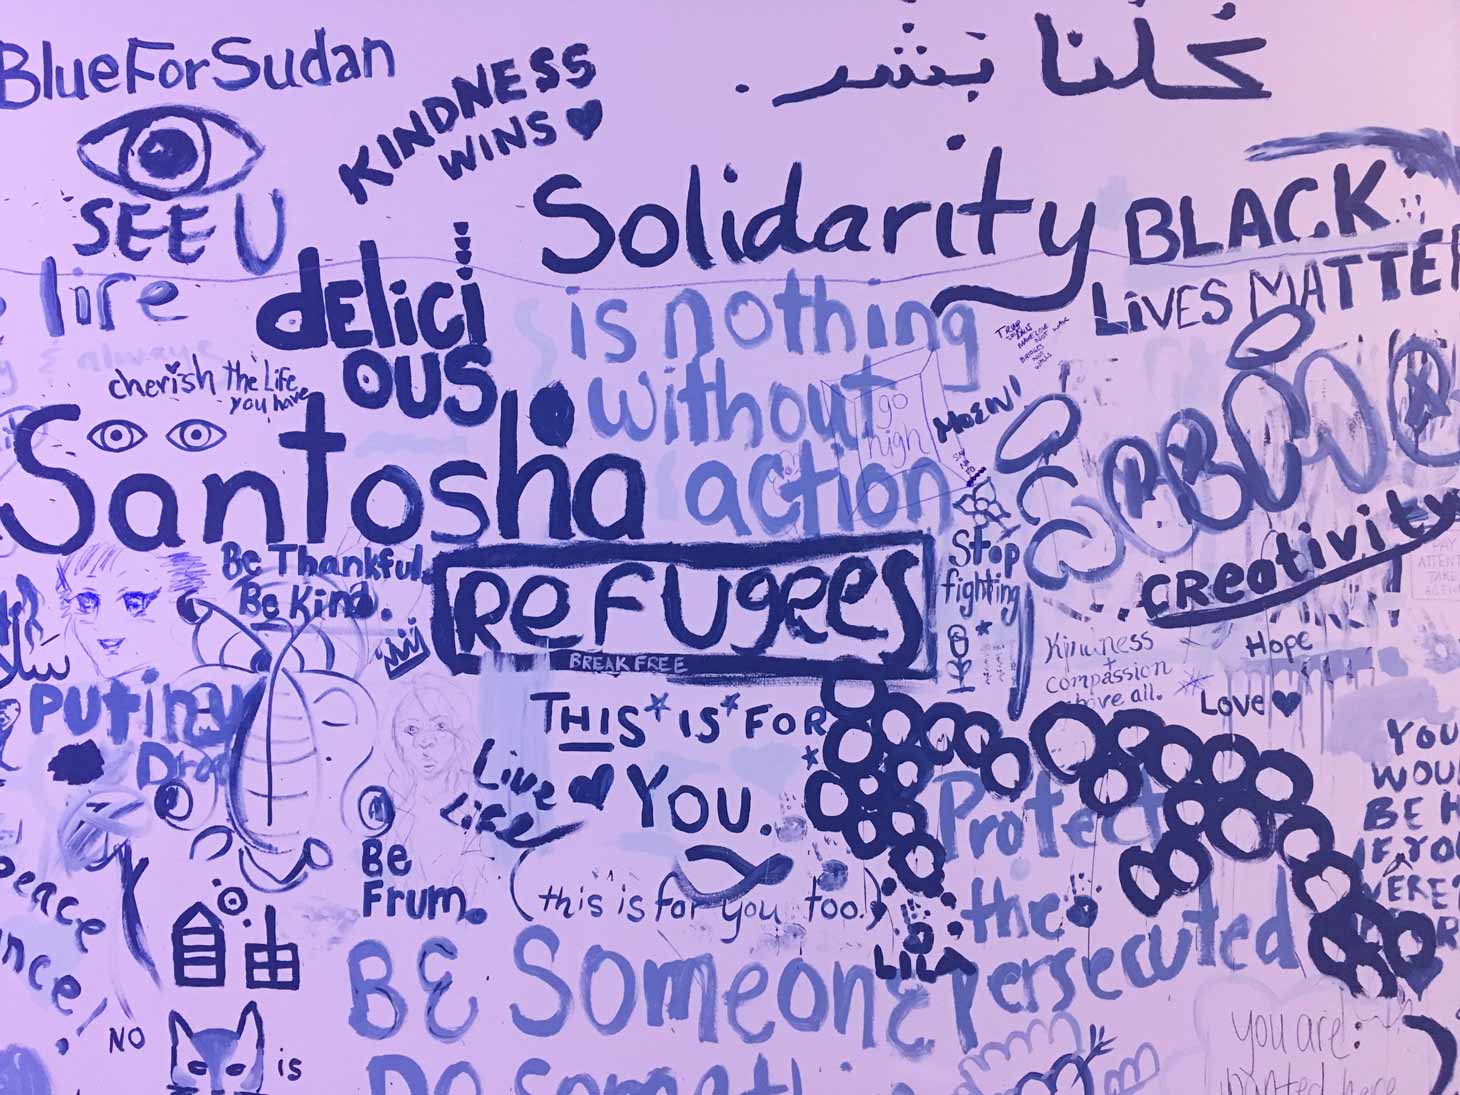 BlueForSudan
KINDNESS
WINS
كلنا بشر.
SEE U
Solidarity
BLACK
LIVES MATTER
life
dElici
OUS
is nothing
without
action
cherish the Life
you have
go
high
Santosha
Be Thankful.
Be Kind.
ReFUgees
BREAK FREE
Stop
fighting
creativity
Kindness
+
compassion
above all.
Hope
Love
THIS IS FOR
YOU.
Live
Life
(this is for you too!)
Be
Frum.
Protect
the
persecuted
LILA
YOU
WOUL
BE H
IF YOU
WERE
peace
BE SomeonE
Do Something
NO
is
you are:
wanted here